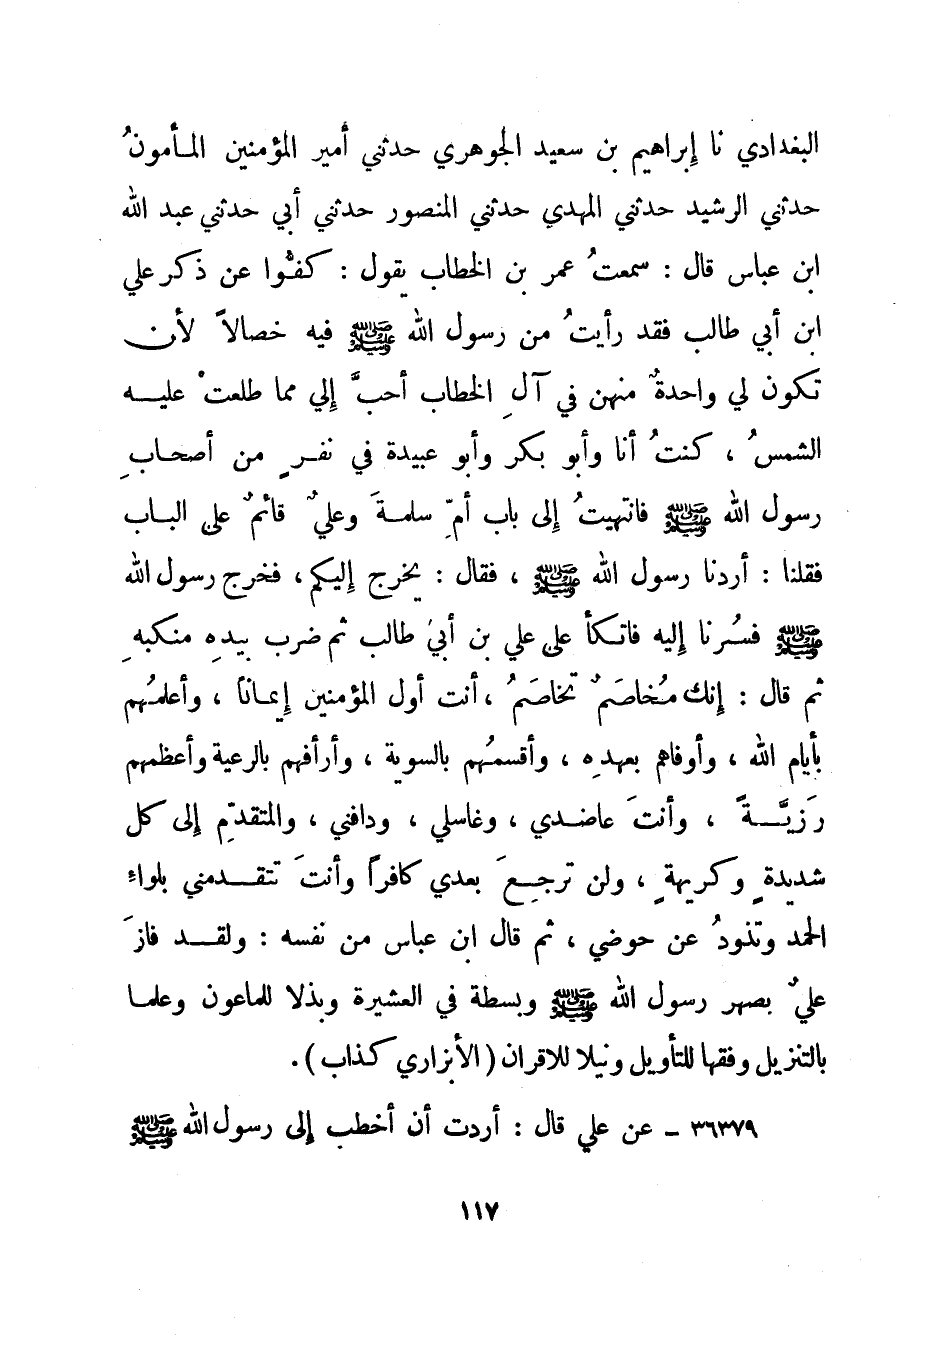 البغدادي نا إبراهيم بن سعيد الجوهري حدثني أمير المؤمنين المـأمونُ
حدثني الرشيد حدثني المهدي حدثني المنصور حدثني أبي حدثني عبد الله
ابن عباس قال : سمعتُ عمر بن الخطاب يقول : كفُّوا عن ذكر علي
ابن أبي طالب فقد رأيتُ من رسول الله ﷺ فيه خصالاً لأن
تكون لي واحدةٌ منهن في آلِ الخطاب أحبَّ إلي مما طلعتْ عليـــه
الشمسُ ، كنتُ أنا وأبو بكر وأبو عبيدة في نفـرٍ من أصحـابِ
رسول الله ﷺ فانتهيتُ إلى باب أمِّ سلمـةَ وعليٌ قائمٌ على البـاب
فقلنا : أردنا رسول الله ﷺ ، فقال : يخرج إليكم ، فخرج رسول الله
ﷺ فسُرنا إليه فاتـكأ على علي بن أبي طالب ثم ضرب بيدهِ منكبهِ
ثم قال : إنك مُخاصَمٌ تخاصَمُ ، أنت أول المؤمنين إيمـاناً ، وأعلمُهم
بأيام الله ، وأوفاهم بعهدِه ، وأقسمُهم بالسوية ، وأرأفهم بالرعية وأعظمهم
رَزِيَّـــةً ، وأنتَ عاضـدي ، وغاسلي ، ودافني ، والمتقدِّم إلى كل
شديدةٍ وكريهةٍ ، ولن ترجـعَ بعدي كافراً وأنتَ تتقـــدمني بلواءِ
الحمد وتذودُ عن حوضي ، ثم قال ابن عباس من نفسه : ولقـــد فازَ
عليٌ بصهر رسول الله ﷺ وبسطة في العشيرة وبذلا للماعون وعلمـا
بالتنزيل وفقها للتأويل ونيلا للاقران ( الأبزاري كذاب ) .
٣٦٣٧٩ ـ عن علي قال : أردت أن أخطب إلى رسول الله ﷺ
١١٧